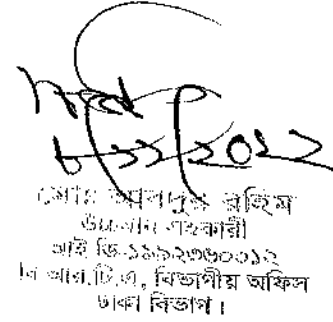 ৮/১১/২০২২
মোঃ আবদুর রহিম
উচ্চমান সহকারী
আই ডি-১৯৯২৩৬০০১২
বি আর.টি.এ, বিভাগীয় অফিস
ঢাকা বিভাগ।